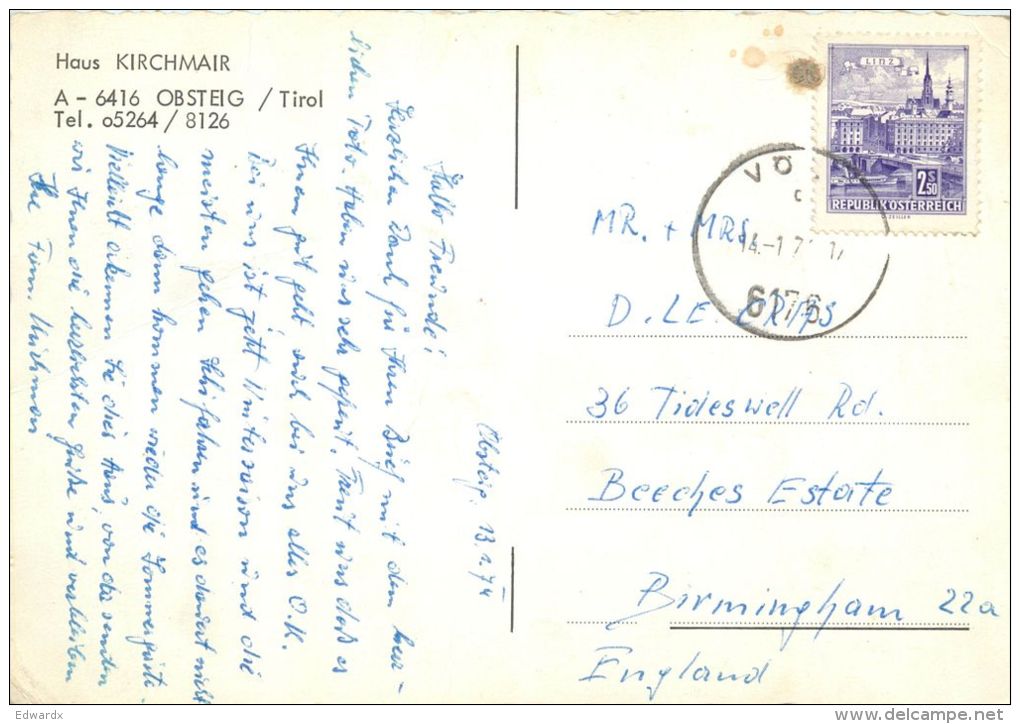 Haus KIRCHMAIR
A - 6416 OBSTEIG / Tirol
Tel. o5264 / 8126
Obsteig, 13.1.74
Hallo Freunde!
Herzlichen Dank für Ihren Brief mit dem
lieben Foto. Haben uns sehr gefreut. Freut uns daß es
Ihnen gut geht, auch bei uns alles O.K.
Bei uns ist jetzt Wintersaison und die
meisten gehen Schifahren und es dauert nicht
lange dann kommen wieder die Sommergäste.
Vielleicht erkennen Sie dies Haus, von da senden
wir Ihnen die herzlichsten Grüße und verbleiben
Ihre Fam. Kirchmair
LINZ
2 S 50
REPUBLIK ÖSTERREICH
VÖ
14.-1.7
6176
MR. + MRS
D. LE. CRIPS
36 Tideswell Rd.
Beeches Estate
Birmingham 22a
England
Edwardx
http://www.delcampe.net